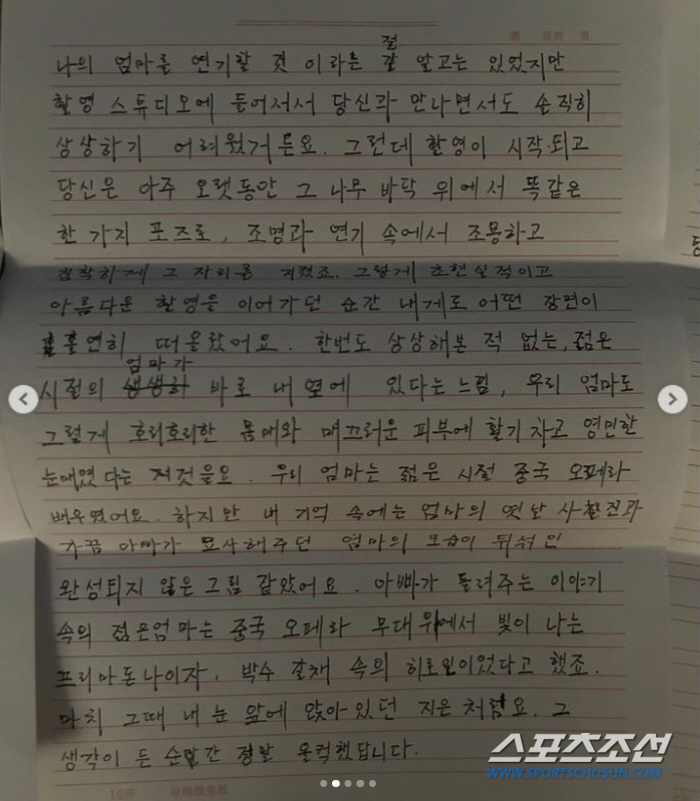 나의 엄마를 연기할 것 이라는 절 잘 알고는 있었지만
촬영 스튜디오에 들어서서 당신과 만나면서도 솔직히
상상하기 어려웠거든요. 그런데 촬영이 시작되고
당신은 아주 오랫동안 그 나무 바닥 위에서 똑같은
한 가지 포즈로, 조명과 연기 속에서 조용하고
침착하게 그 자리를 지켰죠. 그렇게 초현실적이고
아름다운 촬영을 이어가던 순간 내게로 어떤 장면이
홀연히 떠올랐어요. 한번도 상상해본 적 없는, 젊은
시절의 엄마가 생생하 바로 내 옆에 있다는 느낌, 우리 엄마도
그렇게 호리호리한 몸매와 매끄러운 피부에 활기차고 영민한
눈매였다는 저것을요. 우리 엄마는 젊은 시절 중국 오페라
배우였어요. 하지만 내 기억 속에는 엄마의 옛날 사활진과
가끔 아빠가 묘사해주던 엄마의 모습이 뒤섞인
완성되지 않은 그림 같았어요. 아빠가 들려주는 이야기
속의 젊은엄마는 중국 오페라 무대 위에서 빛이 나는
프리마돈나이자, 박수 갈채 속의 히로인이었다고 했죠.
마치 그때 내 눈 앞에 앉아 있던 지은 처럼요. 그
생각이 든 순간 정말 울컥했답니다.
스포츠조선
WWW.SPORTSCHOSUN.COM